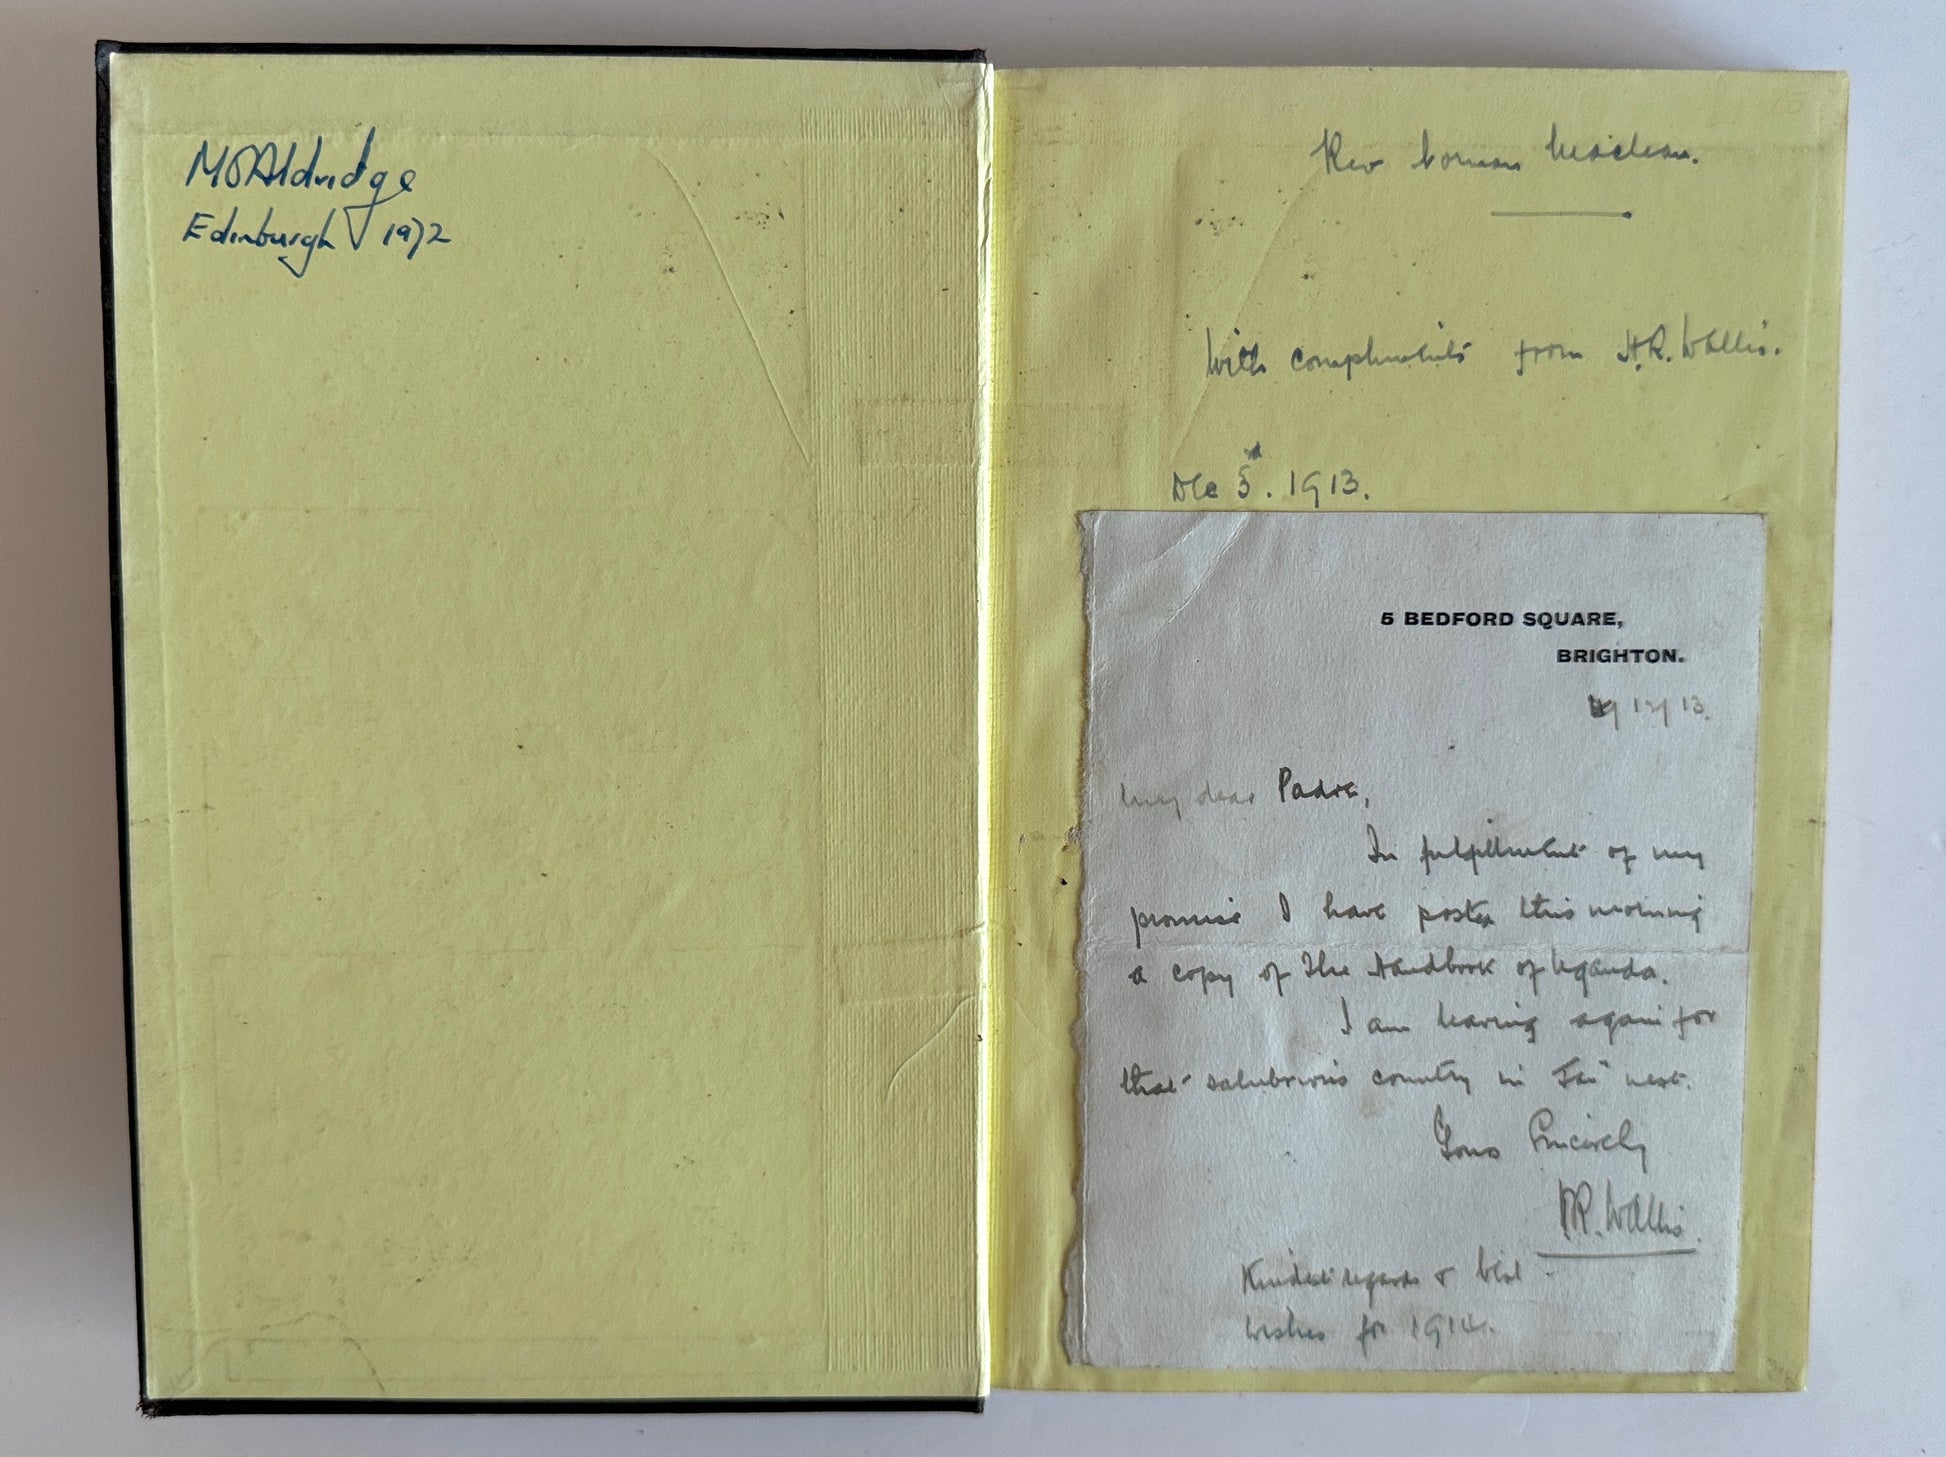 M D Aldridge
Edinburgh 1972
Rev Norman Maclean.
With compliments from H.R. Wallis.
Dec 3rd. 1913.
5 BEDFORD SQUARE,
BRIGHTON.
12/13.
My dear Padre,
In fulfilment of my
promise I have posted this morning
a copy of the Handbook of Uganda.
I am leaving again for
that salubrious country in Jan next.
Yours Sincerely
H.R. Wallis.
Kindest regards & best
wishes for 1914.